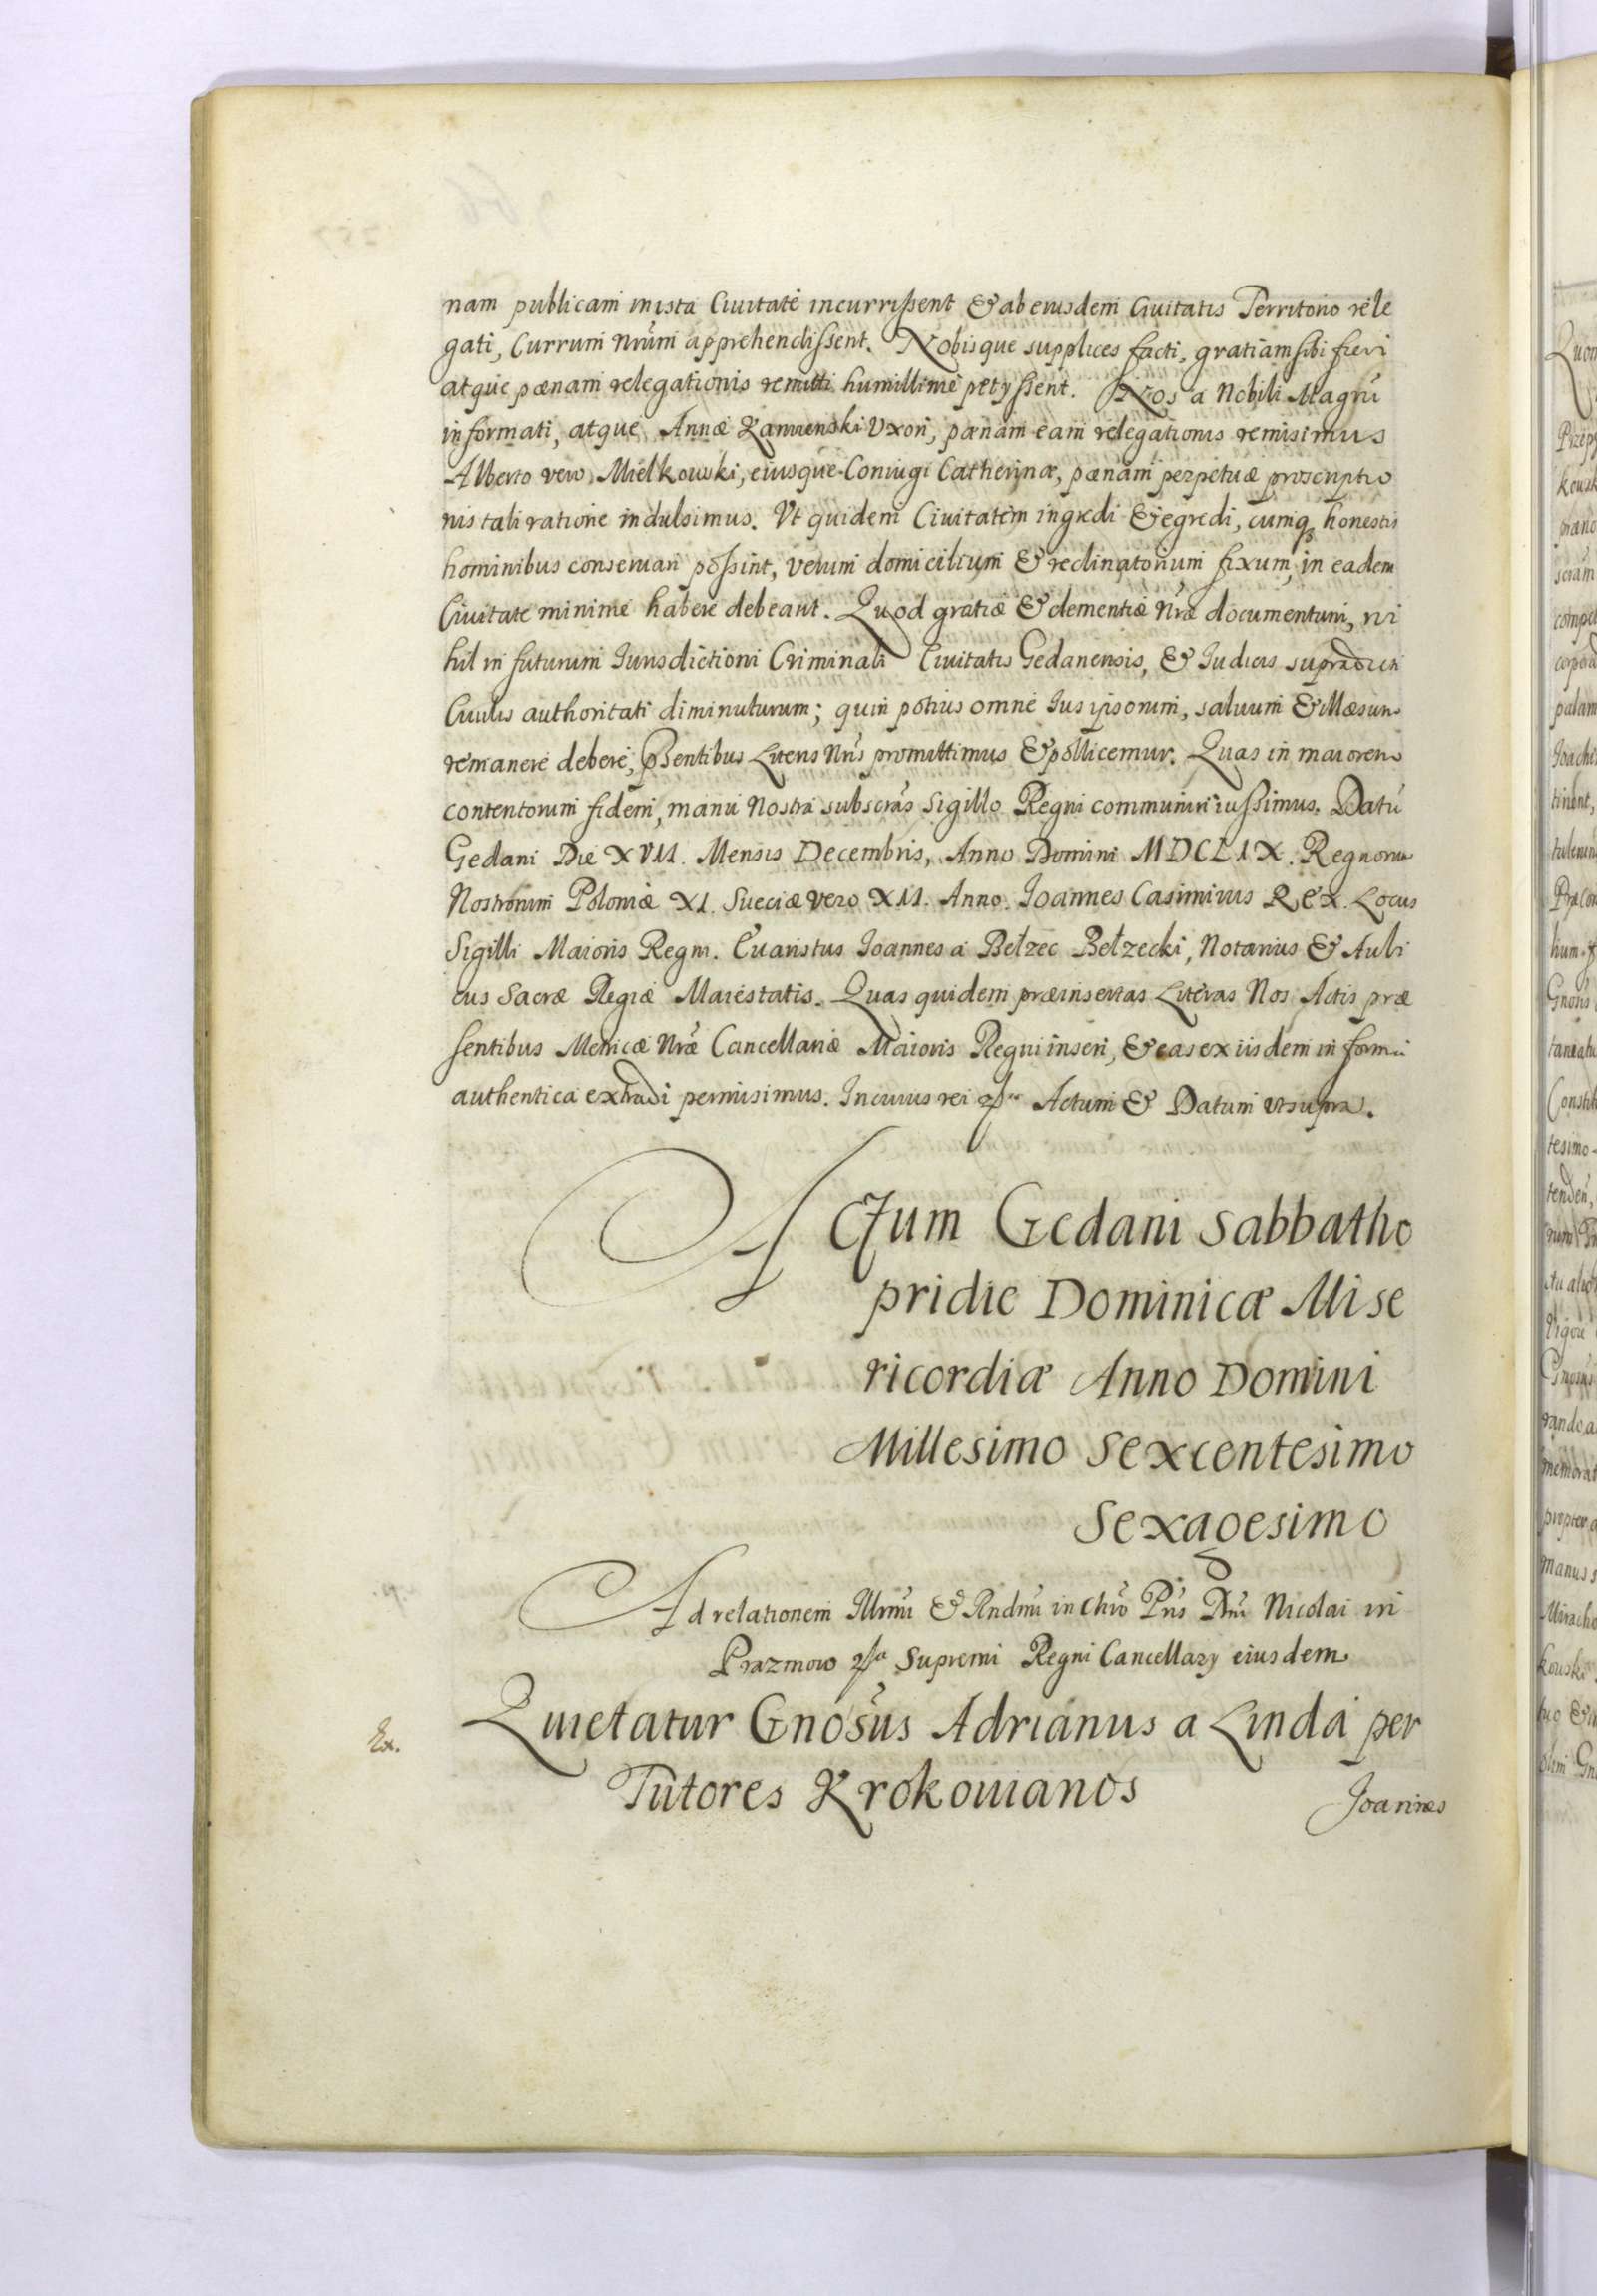 nam publicam in ista Ciuitate incurrissent & ab eiusdem Ciuitatis Territorio rele
gati, Currum Nrum apprehendissent. Nobisque supplices facti, gratiam sibi fieri
atque pænam relegationis remitti humillime petyssent. Nos a Nobili Magrū
informati, atque Annæ Kamienski Vxori, pænam eam relegationis remisimus
Alberto vero Mielkowski, eiusque Coniugi Catherinæ, pænam perpetuæ proscriptio
nis tali ratione indulsimus. Vt quidem Ciuitatem ingredi & egredi, cumq honestis
hominibus conseruari possint, verum domicilium & reclinatorium fixum, in eadem
Ciuitate minime habere debeant. Quod gratiæ & clementiæ Nræ documentum, ni
hil in futurum Iurisdictioni Criminali Ciuitatis Gedanensis, & Iudicis supradicti
Cuius authoritati diminuturum; quin potius omne Ius ipsorum, saluum & illæsum
remanere debere, Pńtibus Literis Nris promittimus & pollicemur. Quas in maiorem
contentorum fidem, manu Nostra subscras Sigillo Regni communiri iussimus. Datū
Gedani Die XVII. Mensis Decembris, Anno Domini MDCLIX. Regnorum
Nostrorum Poloniæ XI. Sueciæ vero XII. Anno. Ioannes Casimirus REX. Locus
Sigilli Maioris Regni. Euaristus Ioannes a Bełzec Bełzecki, Notarius & Auli
cus Sacræ Regiæ Maiestatis. Quas quidem præinsertas Literas Nos Actis præ
sentibus Metricæ Nræ Cancellariæ Maioris Regni inseri, & eas ex iisdem in forma
authentica extradi permisimus. In cuius rei Actum & Datum vt supra.
Actum Gedani Sabbatho
pridie Dominicæ Mise
ricordiæ Anno Domini
Millesimo Sexcentesimo
Sexagesimo
Ad relationem Illmi & Rndmi in Chro Pris Dni Nicolai in
Prazmow Supremi Regni Cancellary eiusdem
Quietatur Gnosus Adrianus a Linda per
Tutores Krokouianos
Joannes